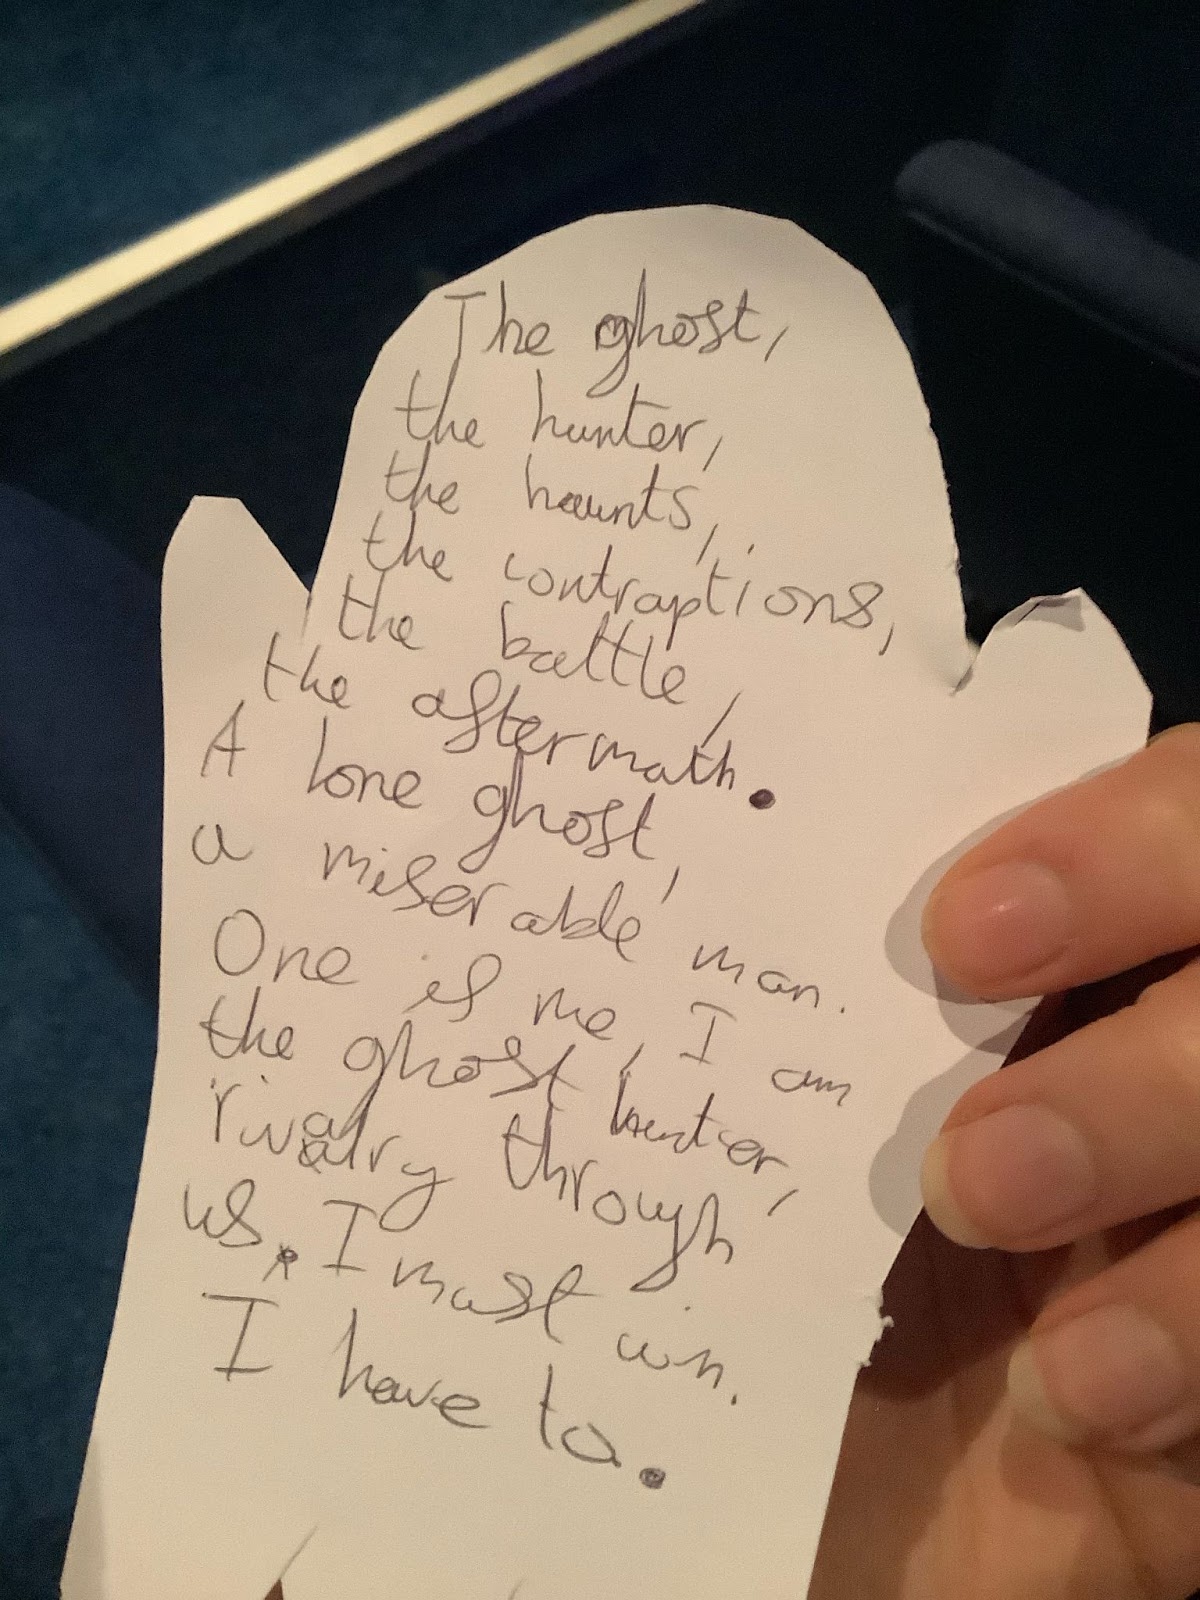 The ghost,
the hunter,
the haunts,
the contraptions,
the battle,
the aftermath.
A lone ghost,
a miserable man.
One is me, I am
the ghost hunter,
rivalry through
us. I must win.
I have to.